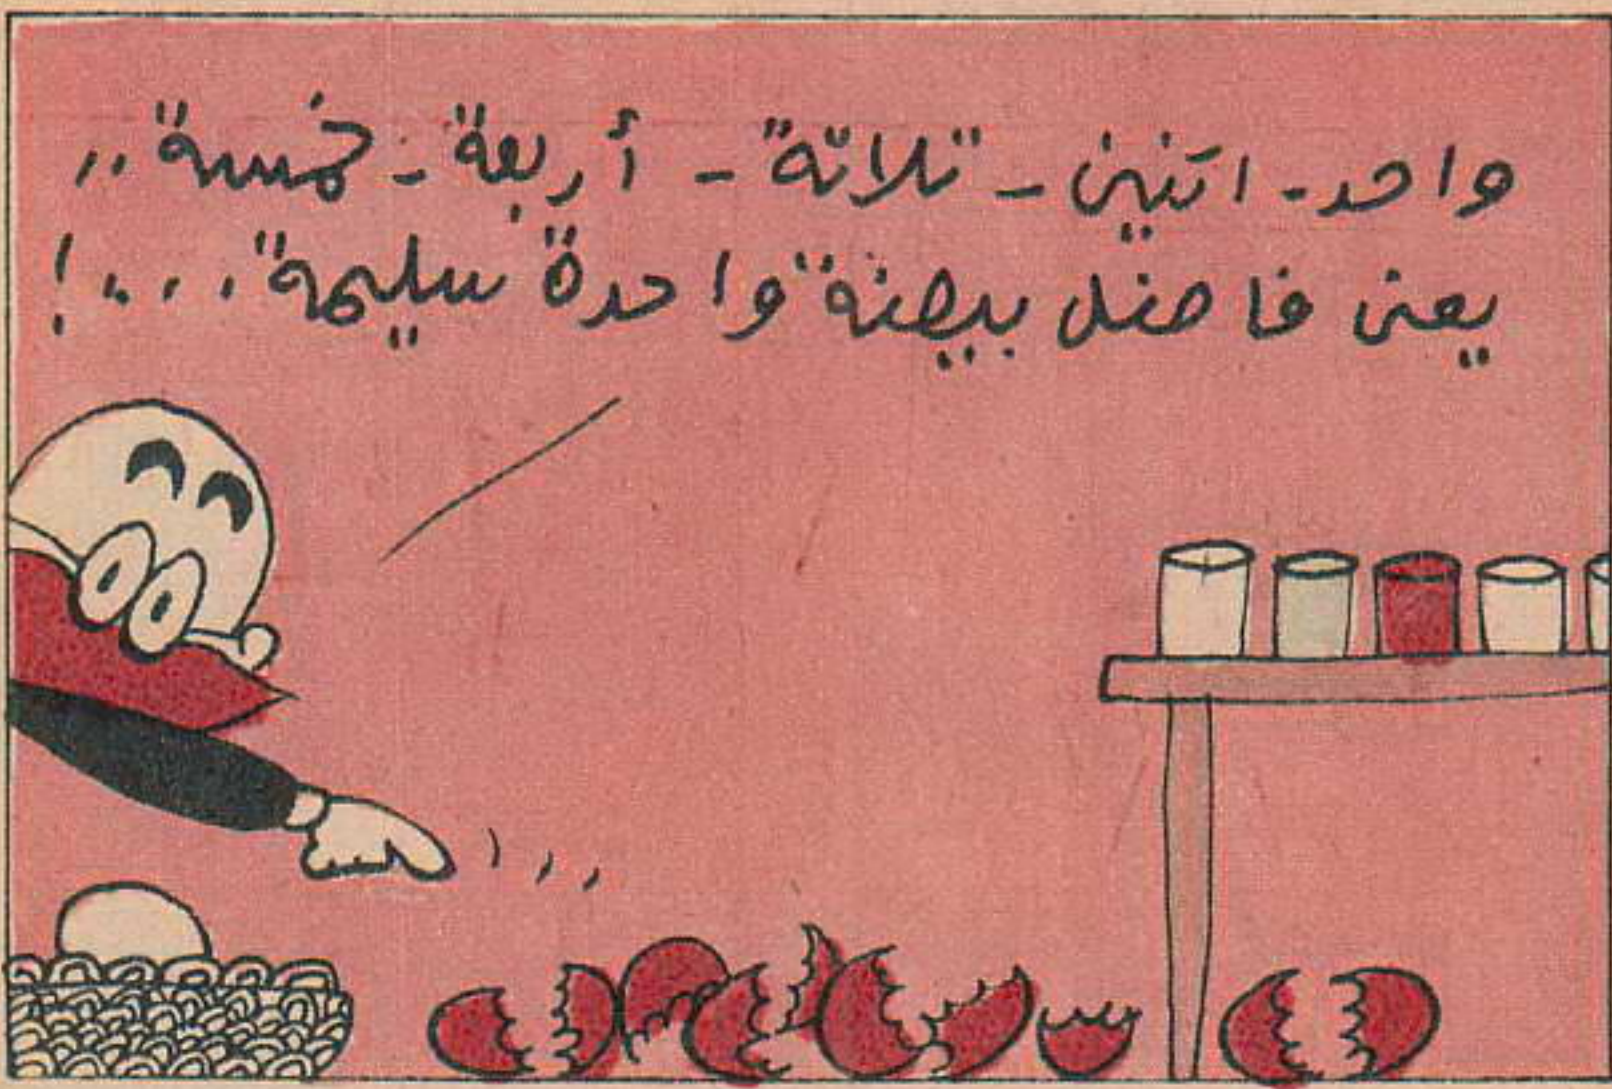 واحد - اتنين - تلاتة - أربعة - خمسة ,,
يعنى فاضل بيضة واحدة سليمة ....!